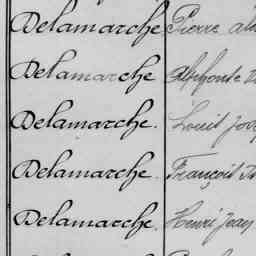 Delamarche Pierre
Delamarche Alphonse
Delamarche. Louis
Delamarche. François
Delamarche. Henri Jean